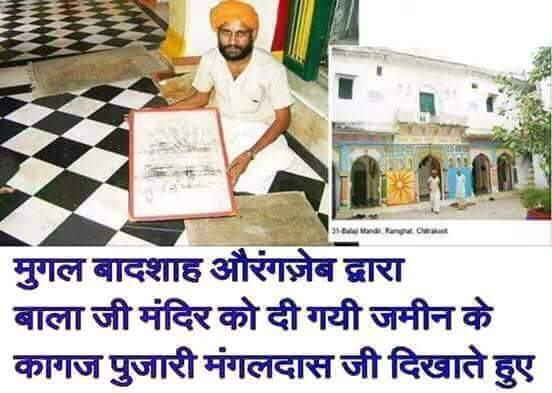 31-Balaji Mandir, Ramghat, Chitrakoot
मुगल बादशाह औरंगज़ेब द्वारा
बाला जी मंदिर को दी गयी जमीन के
कागज पुजारी मंगलदास जी दिखाते हुए